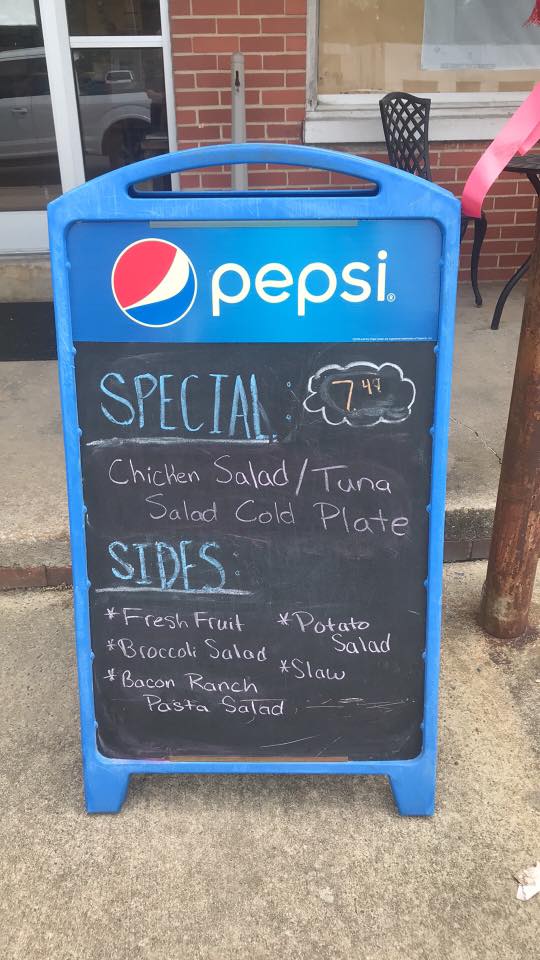 pepsi®
SPECIAL: 7.49
Chicken Salad/Tuna
Salad Cold Plate
SIDES:
*Fresh Fruit
*Broccoli Salad
*Bacon Ranch
Pasta Salad
*Potato
Salad
*Slaw